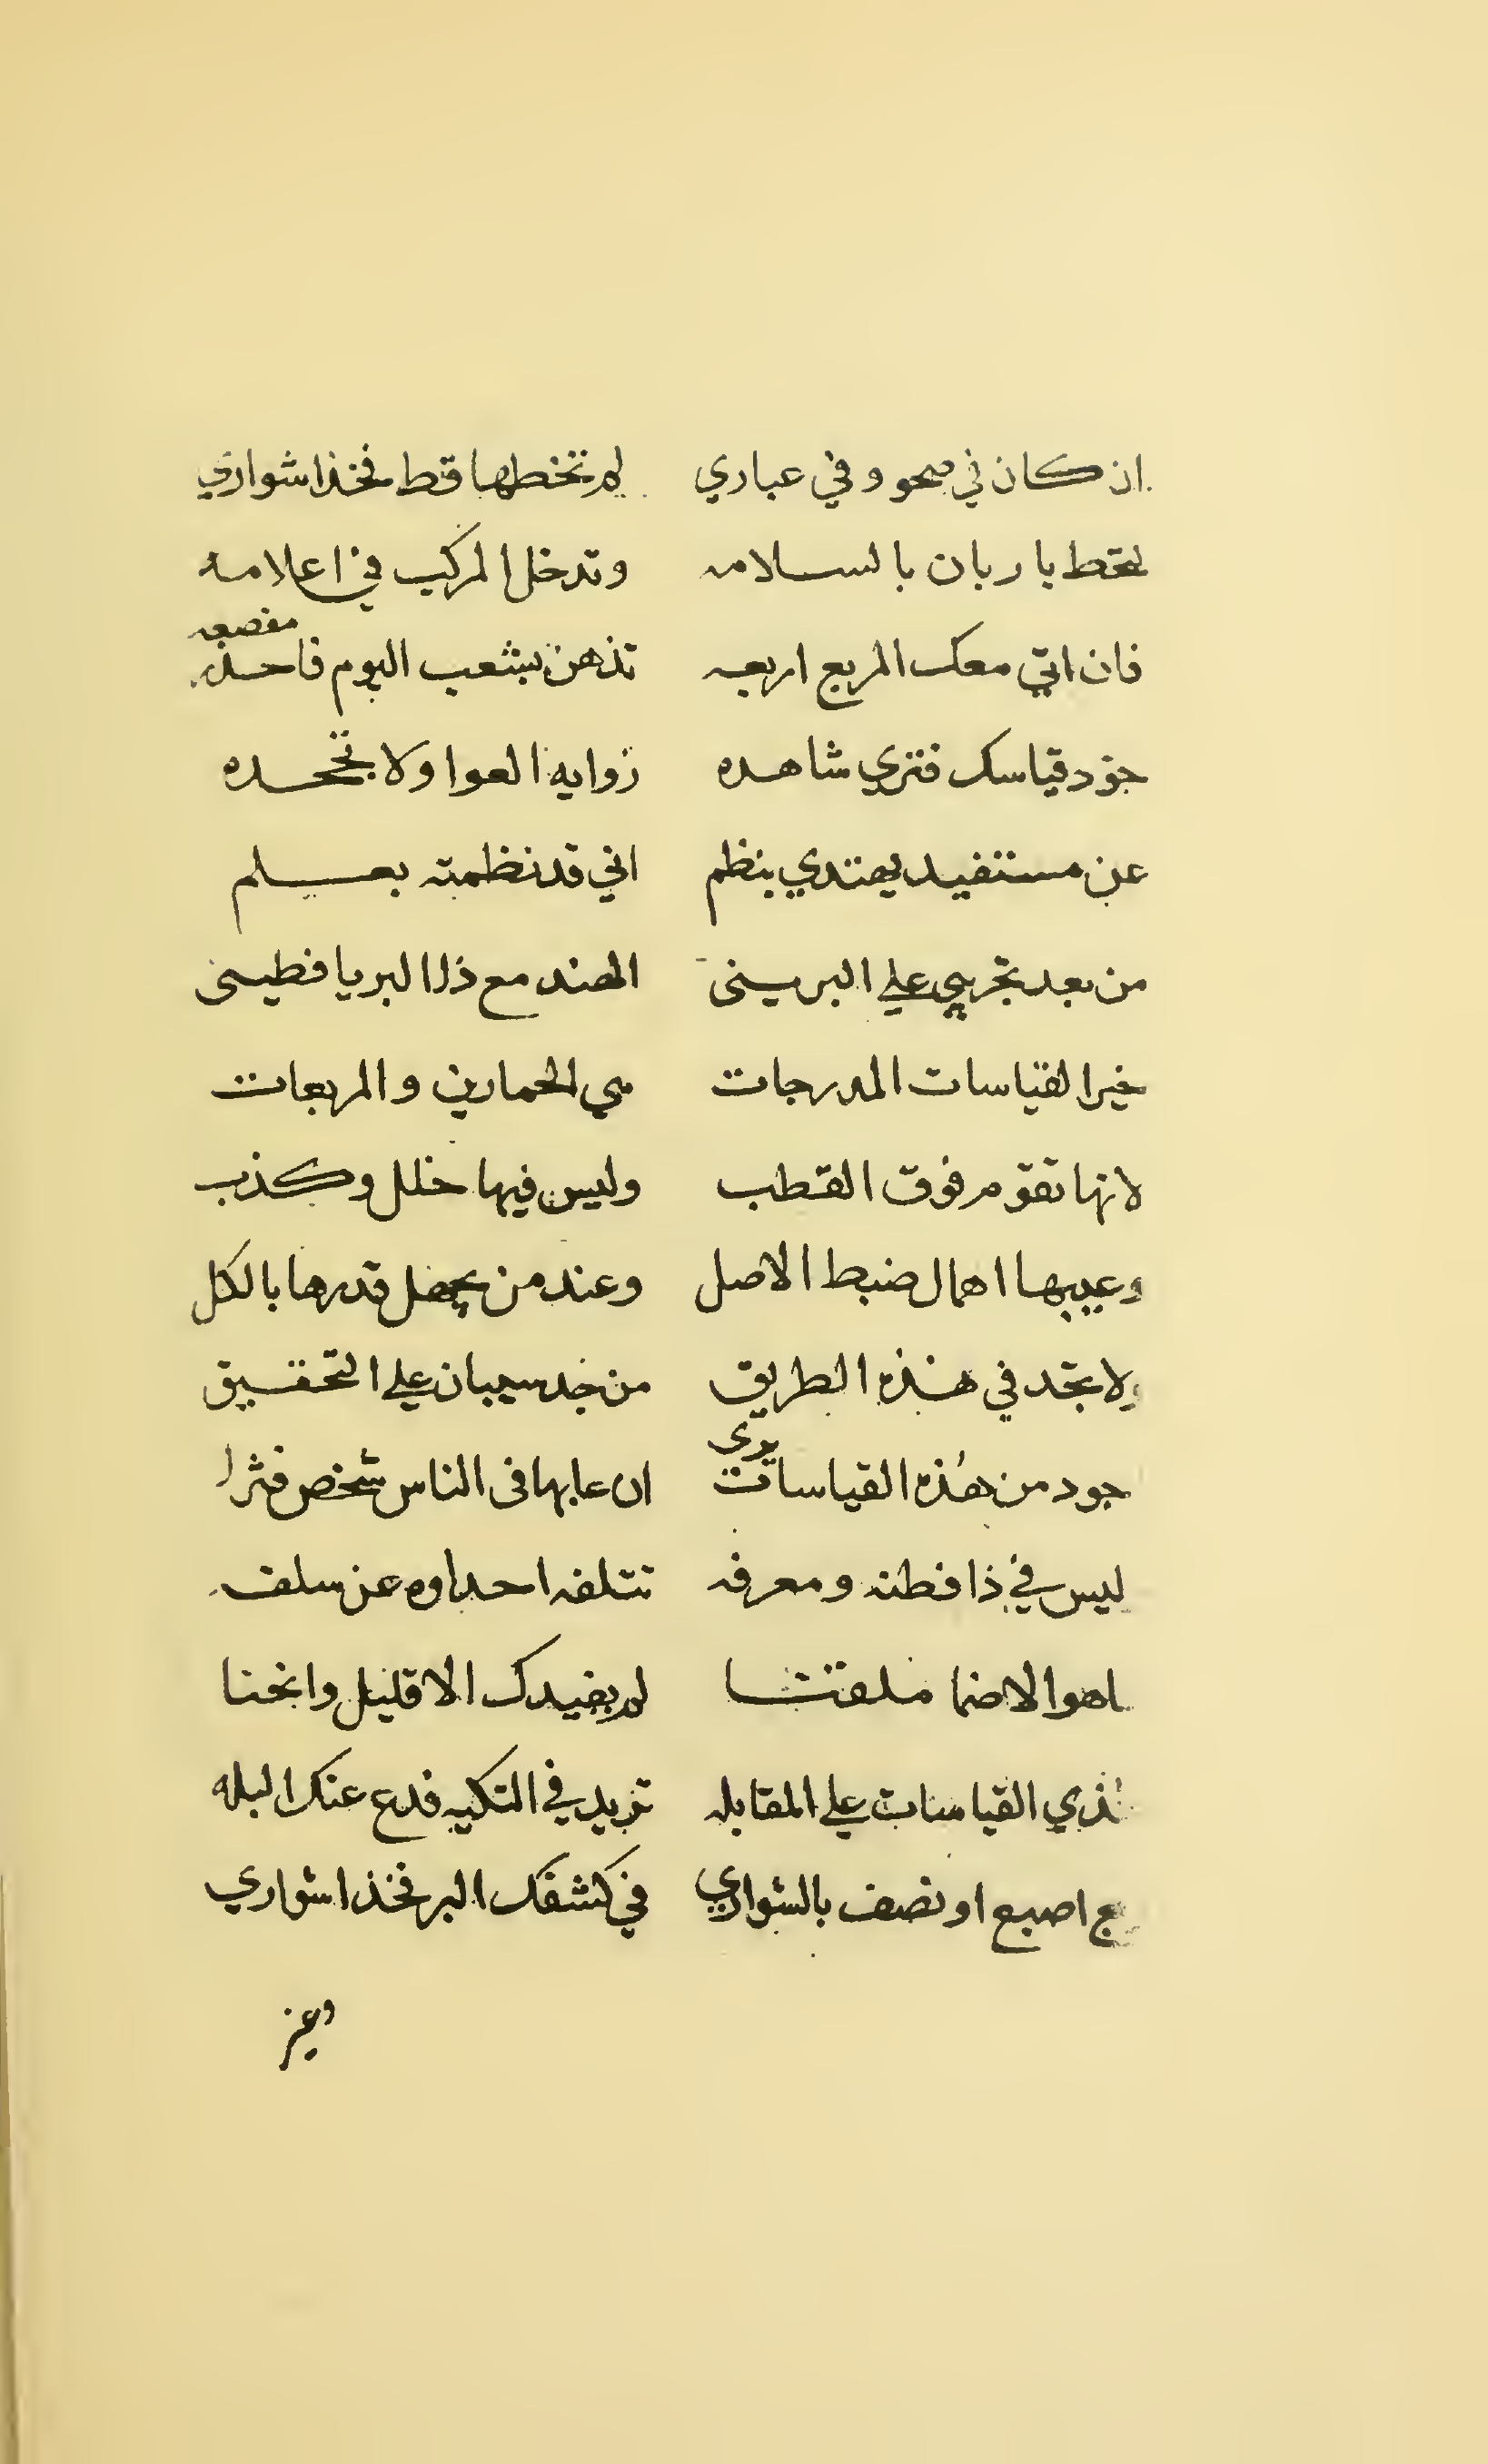 ان كان في صحو وفي عباري لم تخطها قط فخذ اشواري
تحط يا ربان بالسلامه وتدخل المركب في اعلامه
فان اتي معك المربع اربعه تذهن بشعب اليوم فاحذر مفصعه
جود قياسك فتري شاهده زوايه العوا ولا تجحده
عن مستفيد يهتدي بنظم اني قد نظمته بعلم
من بعد تجربي علي البر سنى الهند مع ذا البر يا فطينى
خير القياسات المدرجات هي الحمارين والمربعات
لانها تقوم فوق القطب وليس فيها خلل وكذب
وعيبها اهمال ضبط الاصل وعند من يجهل قدرها بالكل
ولا تجد في هذه الطريق من خد سيبان علي التحقيق
جود من هذه القياسات تري ان عابها في الناس شخص فترا
ليس في ذا فطنه ومعرفه تتلفه احداوه عن سلفه
ماهوا الا ضما ملفتا لم يفيدك الا قليل وانحنا
هذي القياسات علي المقابله تزيد في التكيه فدع عنك البله
ربع اصبع او نصف بالشواري في كشفك البر فخذ اشواري
وعز